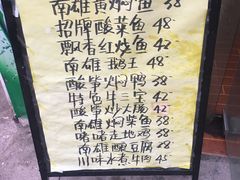 南雄黄焖鱼 38
招牌酸菜鱼 48
飘香红烧鱼 48
南雄鹅王 38
酸笋焖鸭 48
特色牛三宝 42
酸笋炒大肠 42
南雄焖菜鱼 58
啫啫走地鸡 38
南雄酿豆腐 38
川味水煮牛肉 45